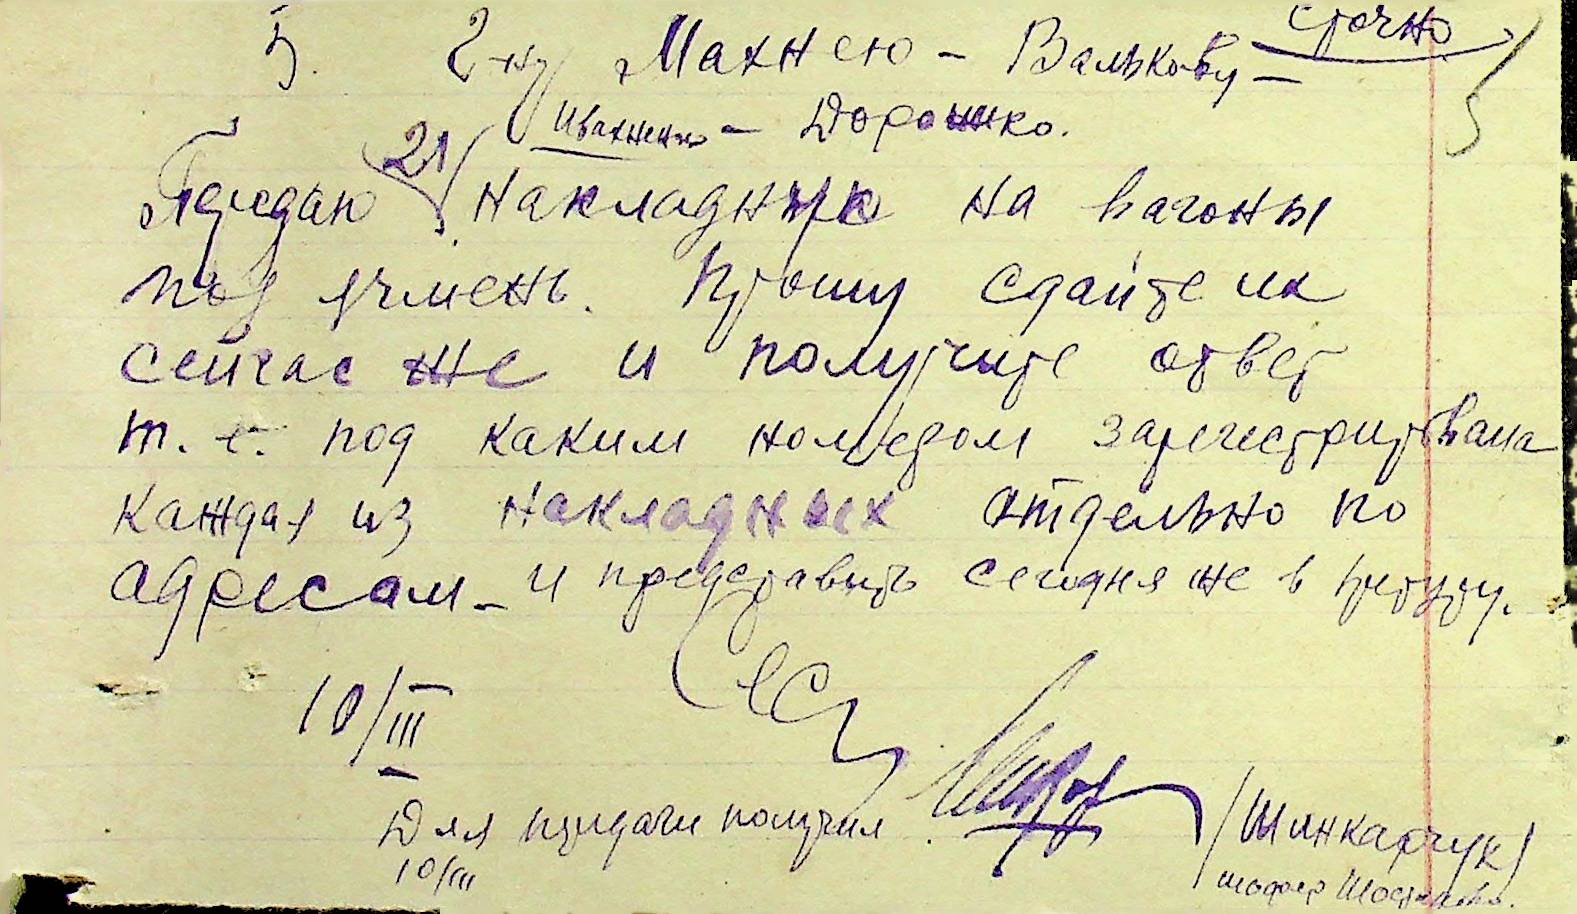 Срочно
5. Г-ну Махнею - Валькову -
Ивахненко - Дорошко.
Передаю 21 накладную на вагоны
под ячмень. Прошу сдайте их
сейчас же и получите ответ
т. е. под каким номером зарегестрирована
каждая из накладных отдельно по
адресам - и представить сегодня же в
10/III
Для передачи получил
10/III
/Шинкарчук/
шофер